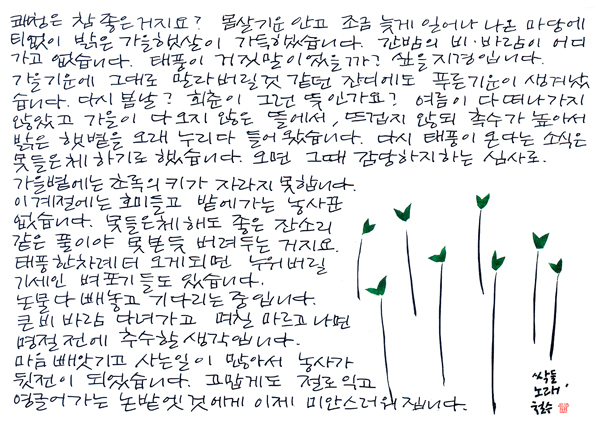 쾌청은 참 좋은거지요? 몸살기운 안고 조금 늦게 일어나 나온 마당에
티없이 밝은 가을햇살이 가득했습니다. 간밤의 비·바람이 어디
가고 없습니다. 태풍이 거짓말이었을까? 싶을지경입니다.
가을기운에 그대로 말라버릴것 같던 잔디에도 푸른기운이 생겨났
습니다. 다시 봄날? 회춘이 그런 뜻인가요? 여름이 다 떠나가지
않았고 가을이 다 오지 않은 뜰에서, 뜨겁지 않되 촉수가 높아서
밝은 햇볕을 오래 누리다 들어왔습니다. 다시 태풍이 온다는 소식은
못들은체 하기로 했습니다. 오면 그때 감당하지하는 심사로.
가을볕에는 초록의 키가 자라지 못합니다.
이계절에는 호미들고 밭에가는 농사꾼
없습니다. 못들은체해도 좋은 잔소리
같은 풀이야 못본듯 버려두는 거지요.
태풍한차례 더 오게되면 누워버릴
기세인 벼포기들도 있습니다.
논물 다 빼놓고 기다리는 중입니다.
큰 비 바람 다녀가고 며칠 마르고나면
명절 전에 추수할 생각입니다.
마음 빼앗기고 사는일이 많아서 농사가
뒷전이 되었습니다. 고맙게도 절로 익고
영글어가는 논밭엣것에게 이제 미안스러워집니다.
싹들
노래.
철수